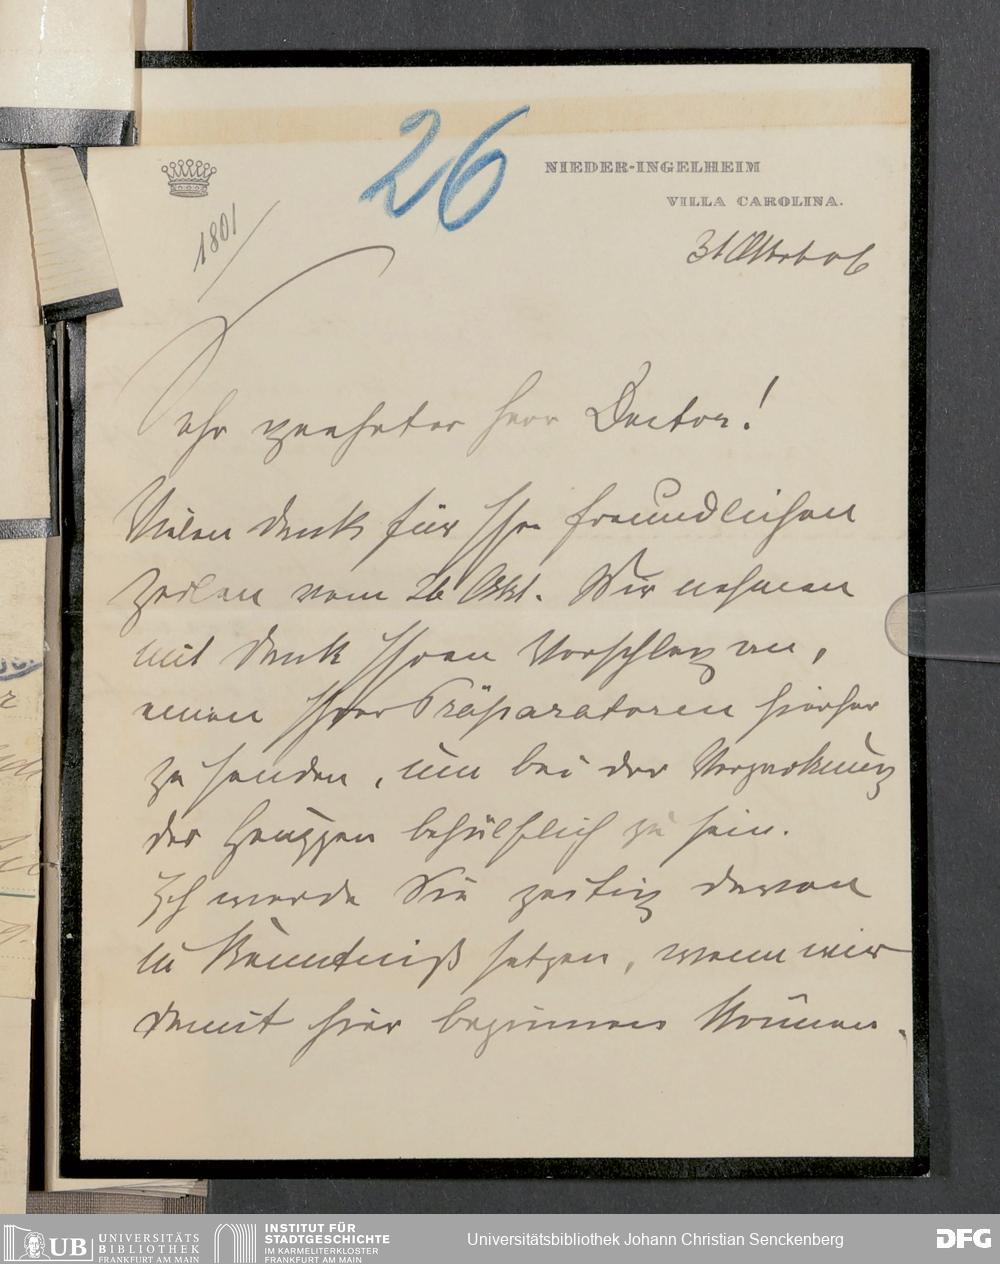 26
NIEDER-INGELHEIM
VILLA CAROLINA.
1801
31 Oktob 06
Sehr geehrter Herr Doctor!
Vielen Dank für Ihre freundlichen
Zeilen vom 26 Okt. Wir nehmen
mit Dank Ihren Vorschlag an,
einen Ihrer Präparatoren hierher
zu senden, um bei der Verpackung
der Gruppen behülflich zu sein.
Ich werde Sie zeitig davon
in Kenntniß setzen, wenn wir
damit hier beginnen können.
UB UNIVERSITÄTS
BIBLIOTHEK
FRANKFURT AM MAIN
INSTITUT FÜR
STADTGESCHICHTE
IM KARMELITERKLOSTER
FRANKFURT AM MAIN
Universitätsbibliothek Johann Christian Senckenberg
DFG